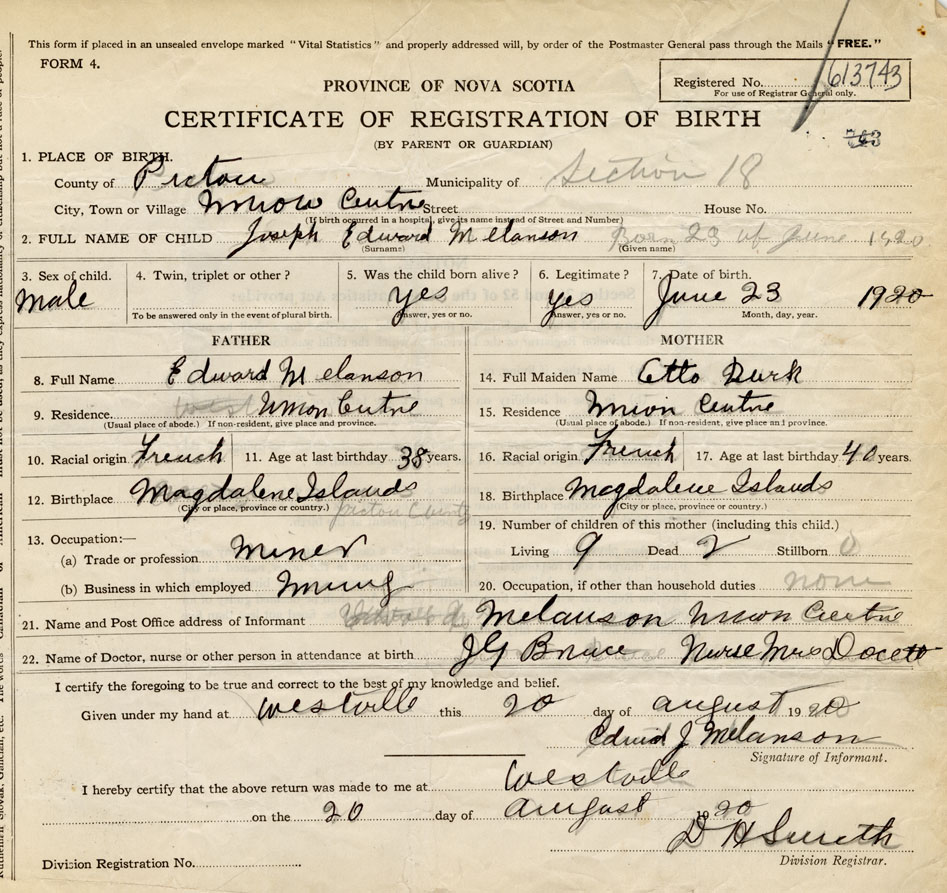 This form if placed in an unsealed envelope marked "Vital Statistics" and properly addressed will, by order of the Postmaster General pass through the Mails "FREE."
FORM 4.
Registered No. 613743
For use of Registrar General only.
PROVINCE OF NOVA SCOTIA
CERTIFICATE OF REGISTRATION OF BIRTH
(BY PARENT OR GUARDIAN)
1. PLACE OF BIRTH.
County of Pictou Municipality of Section 18
City, Town or Village Union Centre Street House No.
(If birth occurred in a hospital, give its name instead of Street and Number)
2. FULL NAME OF CHILD Joseph Edward Melanson Born 23 of June 1920
(Surname) (Given name)
3. Sex of child. 4. Twin, triplet or other? 5. Was the child born alive? 6. Legitimate? 7. Date of birth.
Male yes yes June 23 1920
To be answered only in the event of plural birth. Answer, yes or no. Answer, yes or no. Month, day, year.
FATHER MOTHER
8. Full Name Edward Melanson 14. Full Maiden Name Etto Burk
9. Residence West Union Centre 15. Residence Union Centre
(Usual place of abode.) If non-resident, give place and province. (Usual place of abode.) If non-resident, give place and province.
10. Racial origin French 11. Age at last birthday 38 years. 16. Racial origin French 17. Age at last birthday 40 years.
12. Birthplace Magdalene Islands 18. Birthplace Magdalene Islands
(City or place, province or country.) Pictou County (City or place, province or country.)
13. Occupation:— 19. Number of children of this mother (including this child.)
(a) Trade or profession miner Living 9 Dead 2 Stillborn 0
(b) Business in which employed Mining 20. Occupation, if other than household duties none
21. Name and Post Office address of Informant Melanson Union Centre
22. Name of Doctor, nurse or other person in attendance at birth J G Bruce Nurse Mrs Docett
I certify the foregoing to be true and correct to the best of my knowledge and belief.
Given under my hand at Westville this 20 day of august 1920
Edward J Melanson
Signature of Informant.
I hereby certify that the above return was made to me at Westville
on the 20 day of august 1920
D H Smith
Division Registrar.
Division Registration No.